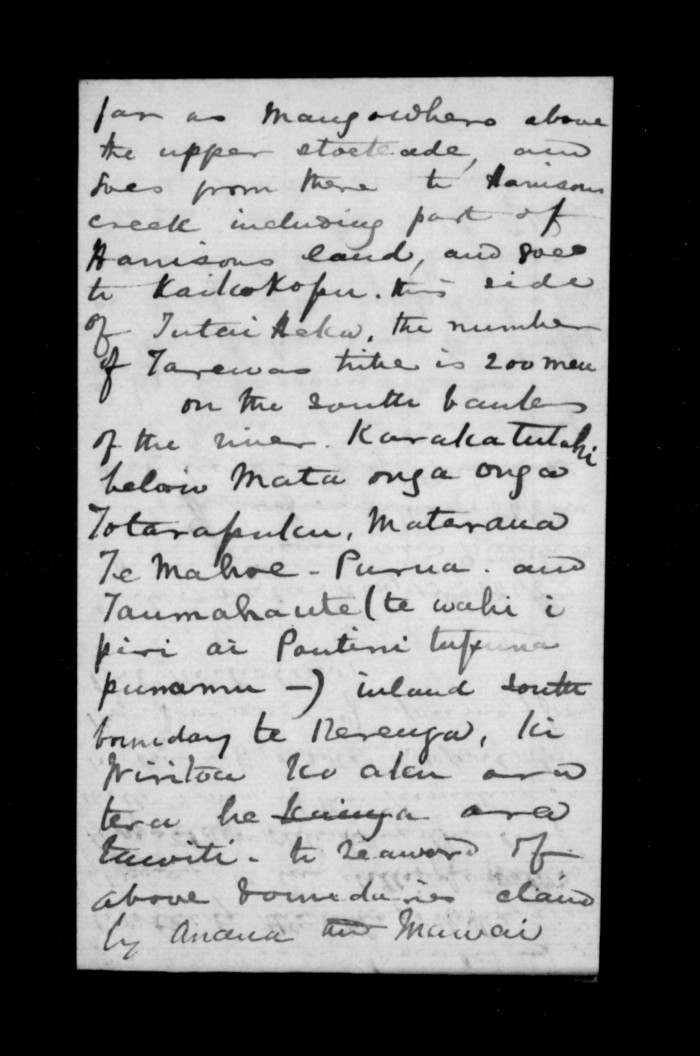 far as Mangowhero above
the upper stockade, and
goes from there to Harrisons
creek including part of
Harrisons land, and goes
to Kaikokopu. this side
of Tutai Heka, the number
of Tarewas tribe is 200 men
on the south banks
of the river. Karakatutahi
below Mata onga onga
Totarapuku, Mataraua
Te Mahoe - Purua. and
Taumahaute (te wahi i
piri ai Poutini tupuna
punamu -) inland south
boundary te Rerenga, ki
Wiritoa ko aku ara
tera he kainga ara
tawiti - to seaward of
above boundaries claim
by Anaua and Mawai